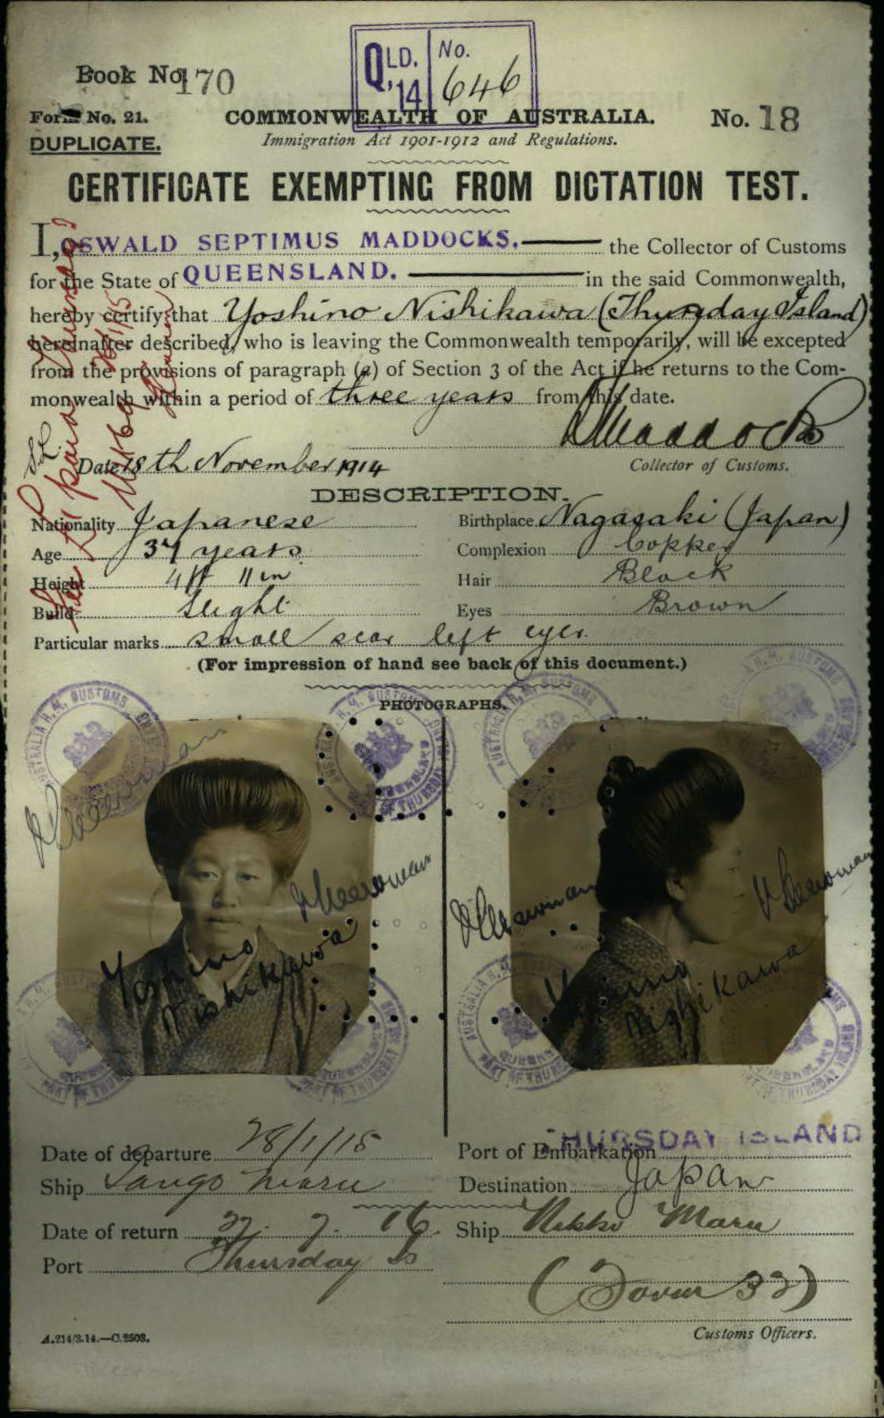 Book No. 170
QLD. '14 No. 646
Form No. 21.
COMMONWEALTH OF AUSTRALIA.
No. 18
DUPLICATE.
Immigration Act 1901-1912 and Regulations.
CERTIFICATE EXEMPTING FROM DICTATION TEST.
I, OSWALD SEPTIMUS MADDOCKS, the Collector of Customs
for the State of QUEENSLAND. in the said Commonwealth,
hereby certify that Yoshino Nishikawa (Thursday Island)
hereinafter described, who is leaving the Commonwealth temporarily, will be excepted
from the provisions of paragraph (a) of Section 3 of the Act if he returns to the Com-
monwealth within a period of three years from this date.
Maddocks
Date 18th November 1914
Collector of Customs.
DESCRIPTION.
Nationality Japanese
Birthplace Nagasaki (Japan)
Age 37 years
Complexion Copper
Height 4 ft 11 in
Hair Black
Build Slight
Eyes Brown
Particular marks small scar left eye.
(For impression of hand see back of this document.)
PHOTOGRAPHS.
Yoshino Nishikawa
Yoshino Nishikawa
Date of departure 28/1/15
Port of Embarkation THURSDAY ISLAND
Ship Tango Maru
Destination Japan
Date of return 27. 7. 16
Ship Nikko Maru
Port Thursday Is
Customs Officers.
A.214/3.14.—C.2503.